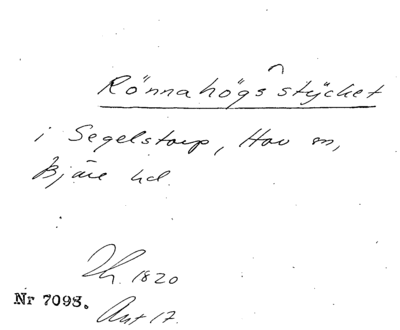 Rönnahögs stÿcket
i Segelstorp, Hov sn,
Bjäre hd.
1820
Nr 7098.
Akt 17.